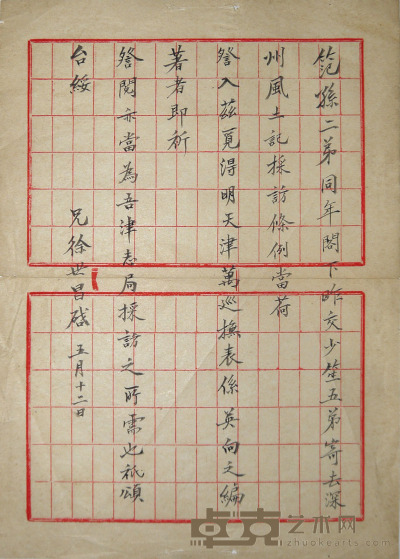 範孫二弟同年閣下昨交少笙五弟寄去深
州風土記採訪條例當荷
詧入茲覓得明天津萬巡撫表係英向之編
著者即祈
詧閱亦當為吾津志局採訪之所需也祇頌
台綏
兄徐世昌啟 五月十二日
卓克艺术网
www.zhuokearts.com